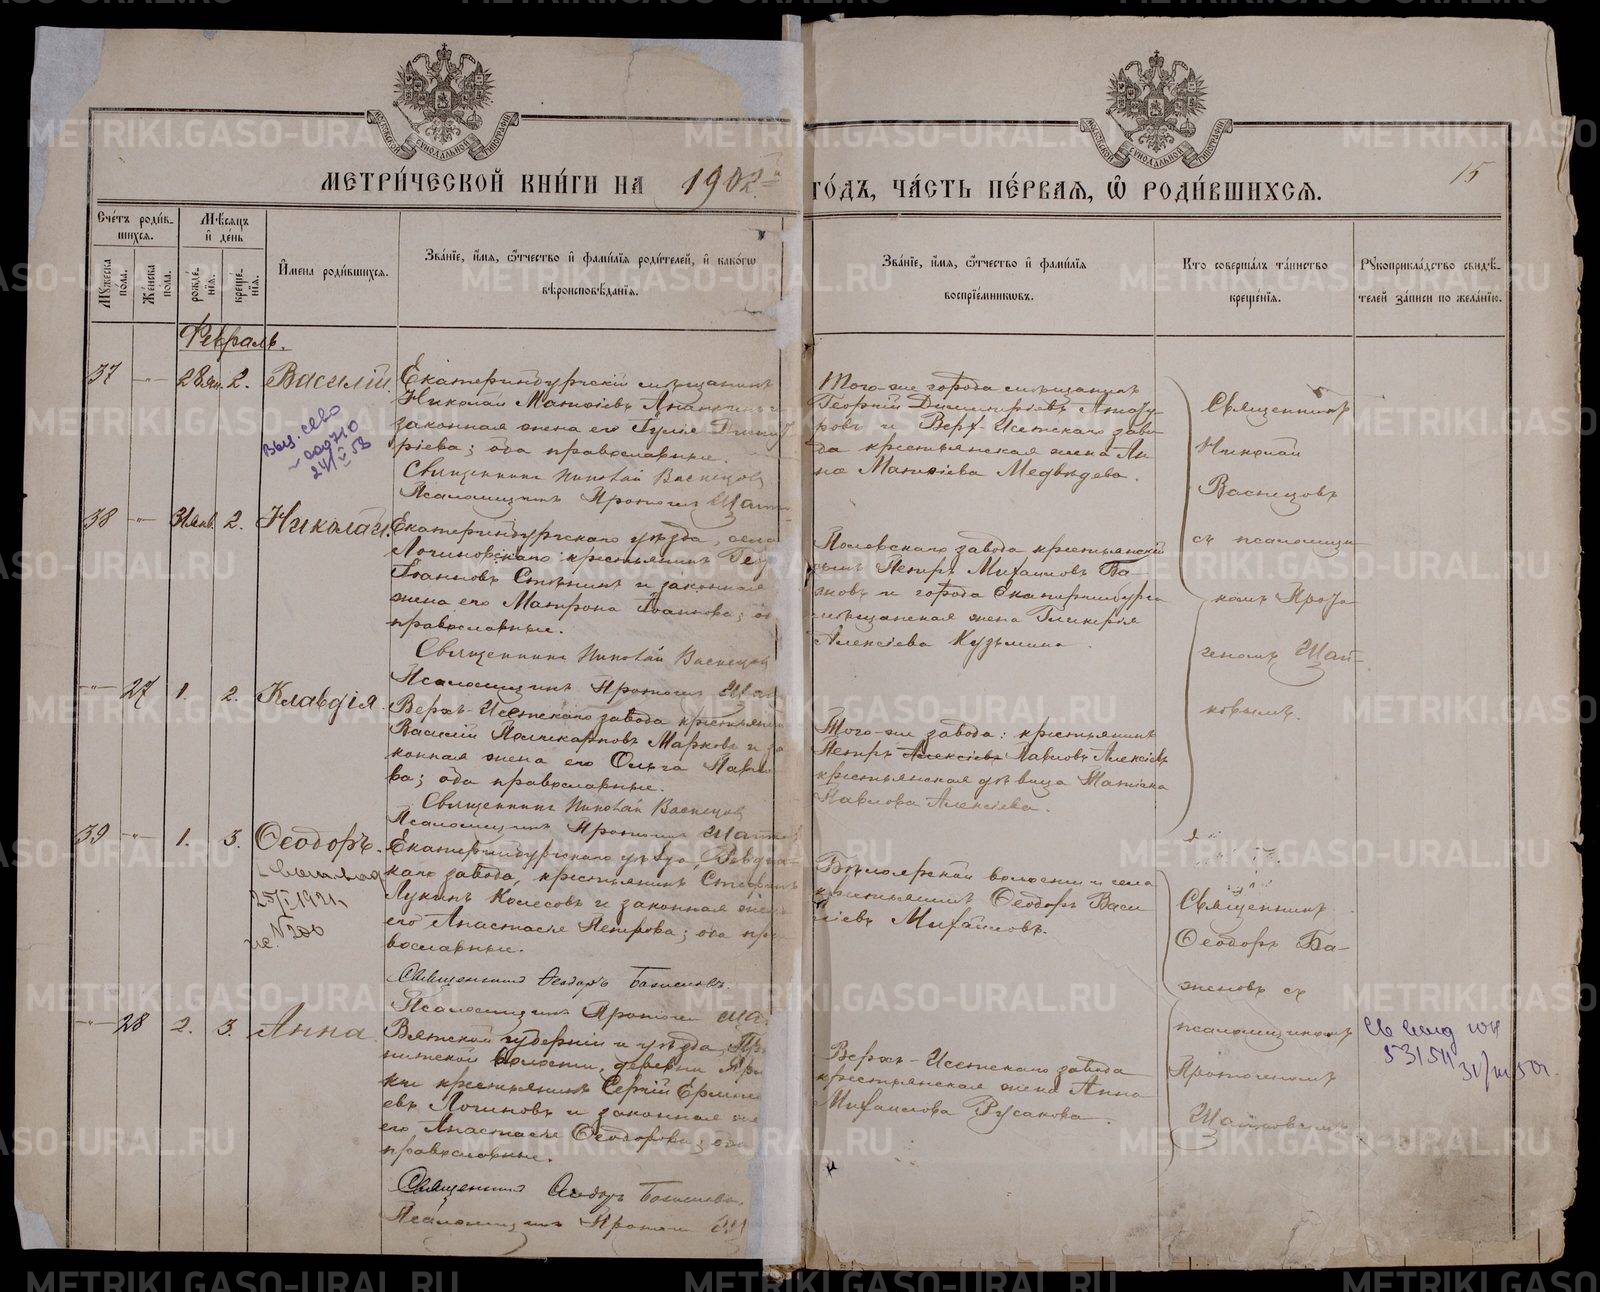 МЕТРИ́ЧЕСКОЙ КНИ́ГИ НА 1902 ГО́ДЪ, ЧА́СТЬ ПЕ́РВАѦ, Ѡ РОДИ́ВШИХСѦ.
15
Сче́тъ роди́в-
шихся.
Мѣ́сяцъ
и҆ де́нь
И҆мена роди́вшихся.
Зва́нїе, и҆́мя, ѻ҆́тчество и҆ фами́лїя роди́телей, и҆ како́гѡ
вѣроисповѣ́данїя.
Зва́нїе, и҆́мя, ѻ҆́тчество и҆ фами́лїя
воспрїе́мниковъ.
Кто соверша́лъ та́инство
креще́нїя.
Рꙋкоприкла́дство свидѣ́-
телей за́писи по жела́нїю.
Мꙋ́жеска
по́ла.
Же́нска
по́ла.
рожде́-
нїя.
креще́-
нїя.
Февраль.
37 —"— 28 ян. 2. Василій.
Екатеринбургскій мѣщанинъ
Николай Матѳіевъ
законная жена его Гулія
ріева; оба православные.
Священникъ Николай Васнецовъ
Псаломщикъ Протоген
Того-же города мѣщанинъ
Георгій Димитріевъ
ровъ и Верх-Исетскаго заво-
да крестьянская жена Ан-
на Матѳіева Медвѣдева.
Священникъ
Николай
Васнецовъ
съ псаломщи-
комъ Прото-
геномъ Шат-
ковымъ.
38 —"— 31 янв. 2. Николай.
Екатеринбургскаго уѣзда, села
Логиновскаго крестьянинъ Геор
Іоанновъ и законная
жена его Матрона Іоаннова; об
православные.
Священникъ Николай Васнецовъ
Псаломщикъ Протоген
Полевскаго завода крестьянскій
сынъ Петръ Михаиловъ Ба-
жовъ и города Екатеринбурга
мѣщанская жена Гликерія
Алексіева Кузьмина.
—"— 27 1. 2. Клавдія.
Верхъ-Исетскаго завода крестьянинъ
Василій Поликарповъ Марковъ и за
конная жена его Ольга
ва; оба православные.
Священникъ Николай Васнецов
Псаломщикъ Протоген
Того-же завода: крестьянинъ
Петръ Алексіевъ Павловъ Алексіевъ
крестьянская дѣвица Татіана
Павлова Алексіева.
39 —"— 1. 3. Ѳеодоръ.
Екатеринбургскаго уѣзда, Ревдин-
скаго завода, крестьянинъ Стефанъ
Лукинъ Колесовъ и законная жена
его Анастасія Петрова; оба пра
вославные.
Священникъ Ѳеодоръ Баженовъ.
Псаломщикъ Протоген
Бѣлоярской волости и села
крестьянинъ Ѳеодоръ Васи-
ліевъ Михаиловъ.
Священникъ
Ѳеодоръ Ба-
женовъ съ
псаломщикомъ
Протогеномъ
Шатковымъ
—"— 28 2. 3. Анна
Вятской губерніи и уѣзда,
волости, деревни
крестьянинъ Сергій
евъ Логиновъ и законная же
его Анастасія Ѳеодорова; оба
православные.
Священникъ Ѳеодоръ Баженовъ.
Псаломщикъ Протоген
Верхъ-Исетскаго завода
крестьянская жена Анна
Михаилова Русакова.
53154
№200
METRIKI.GASO-URAL.RU